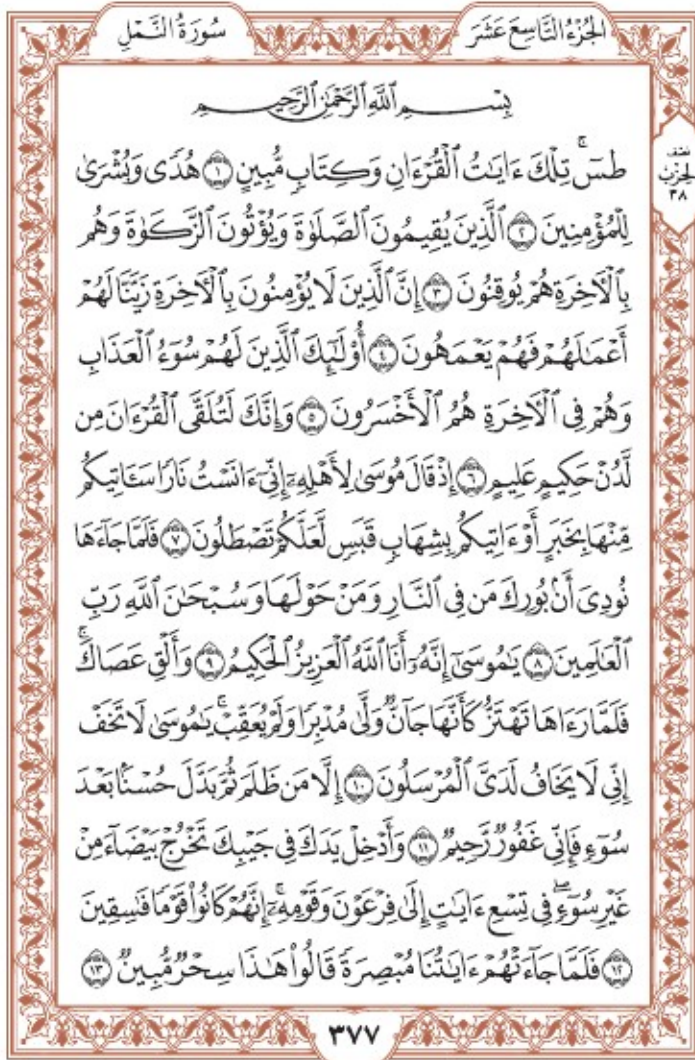 سُورَةُ النَّمۡلِ
الجُزۡءُ التَّاسِعَ عَشَرَ
بِسۡمِ ٱللَّهِ ٱلرَّحۡمَٰنِ ٱلرَّحِيمِ
نصف
الحزب
٣٨
طسٓۚ تِلۡكَ ءَايَٰتُ ٱلۡقُرۡءَانِ وَكِتَابٖ مُّبِينٍ ١ هُدٗى وَبُشۡرَىٰ
لِلۡمُؤۡمِنِينَ ٢ ٱلَّذِينَ يُقِيمُونَ ٱلصَّلَوٰةَ وَيُؤۡتُونَ ٱلزَّكَوٰةَ وَهُم
بِٱلۡأٓخِرَةِ هُمۡ يُوقِنُونَ ٣ إِنَّ ٱلَّذِينَ لَا يُؤۡمِنُونَ بِٱلۡأٓخِرَةِ زَيَّنَّا لَهُمۡ
أَعۡمَٰلَهُمۡ فَهُمۡ يَعۡمَهُونَ ٤ أُوْلَٰٓئِكَ ٱلَّذِينَ لَهُمۡ سُوٓءُ ٱلۡعَذَابِ
وَهُمۡ فِي ٱلۡأٓخِرَةِ هُمُ ٱلۡأَخۡسَرُونَ ٥ وَإِنَّكَ لَتُلَقَّى ٱلۡقُرۡءَانَ مِن
لَّدُنۡ حَكِيمٍ عَلِيمٍ ٦ إِذۡ قَالَ مُوسَىٰ لِأَهۡلِهِۦٓ إِنِّيٓ ءَانَسۡتُ نَارٗا سَـَٔاتِيكُم
مِّنۡهَا بِخَبَرٍ أَوۡ ءَاتِيكُم بِشِهَابٖ قَبَسٖ لَّعَلَّكُمۡ تَصۡطَلُونَ ٧ فَلَمَّا جَآءَهَا
نُودِيَ أَنۢ بُورِكَ مَن فِي ٱلنَّارِ وَمَنۡ حَوۡلَهَا وَسُبۡحَٰنَ ٱللَّهِ رَبِّ
ٱلۡعَٰلَمِينَ ٨ يَٰمُوسَىٰٓ إِنَّهُۥٓ أَنَا ٱللَّهُ ٱلۡعَزِيزُ ٱلۡحَكِيمُ ٩ وَأَلۡقِ عَصَاكَۚ
فَلَمَّا رَءَاهَا تَهۡتَزُّ كَأَنَّهَا جَآنّٞ وَلَّىٰ مُدۡبِرٗا وَلَمۡ يُعَقِّبۡۚ يَٰمُوسَىٰ لَا تَخَفۡ
إِنِّي لَا يَخَافُ لَدَيَّ ٱلۡمُرۡسَلُونَ ١٠ إِلَّا مَن ظَلَمَ ثُمَّ بَدَّلَ حُسۡنَۢا بَعۡدَ
سُوٓءٖ فَإِنِّي غَفُورٞ رَّحِيمٞ ١١ وَأَدۡخِلۡ يَدَكَ فِي جَيۡبِكَ تَخۡرُجۡ بَيۡضَآءَ مِنۡ
غَيۡرِ سُوٓءٖۖ فِي تِسۡعِ ءَايَٰتٍ إِلَىٰ فِرۡعَوۡنَ وَقَوۡمِهِۦٓۚ إِنَّهُمۡ كَانُواْ قَوۡمٗا فَٰسِقِينَ
١٢ فَلَمَّا جَآءَتۡهُمۡ ءَايَٰتُنَا مُبۡصِرَةٗ قَالُواْ هَٰذَا سِحۡرٞ مُّبِينٞ ١٣
٣٧٧